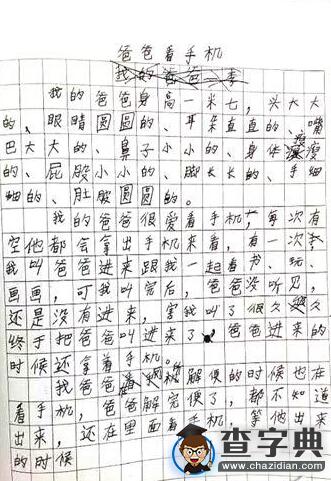 爸爸看手机
我的爸爸二季
我的爸爸身高一米七，头大大
的、眼睛圆圆的、耳朵直直的、嘴
巴大大的、鼻子小小的、身体瘦瘦
的、屁股小小的、脚长长的、手细
细的、肚股圆圆的。
我的爸爸很爱看手机，每次有
空他都会拿出手机来看，有一次
我叫爸爸进来跟我一起看书、玩、
画画，可我叫完后，爸爸没听见，
还是没有进来，害我叫了很久
终于把爸爸叫进来了，爸爸进来的
时候还拿着手机。
我爸爸在解便的时候也在
看手机，爸爸解完便了，都不知道
出来，还在里面看手机，等他出来
的时候
查字典
www.chazidian.com